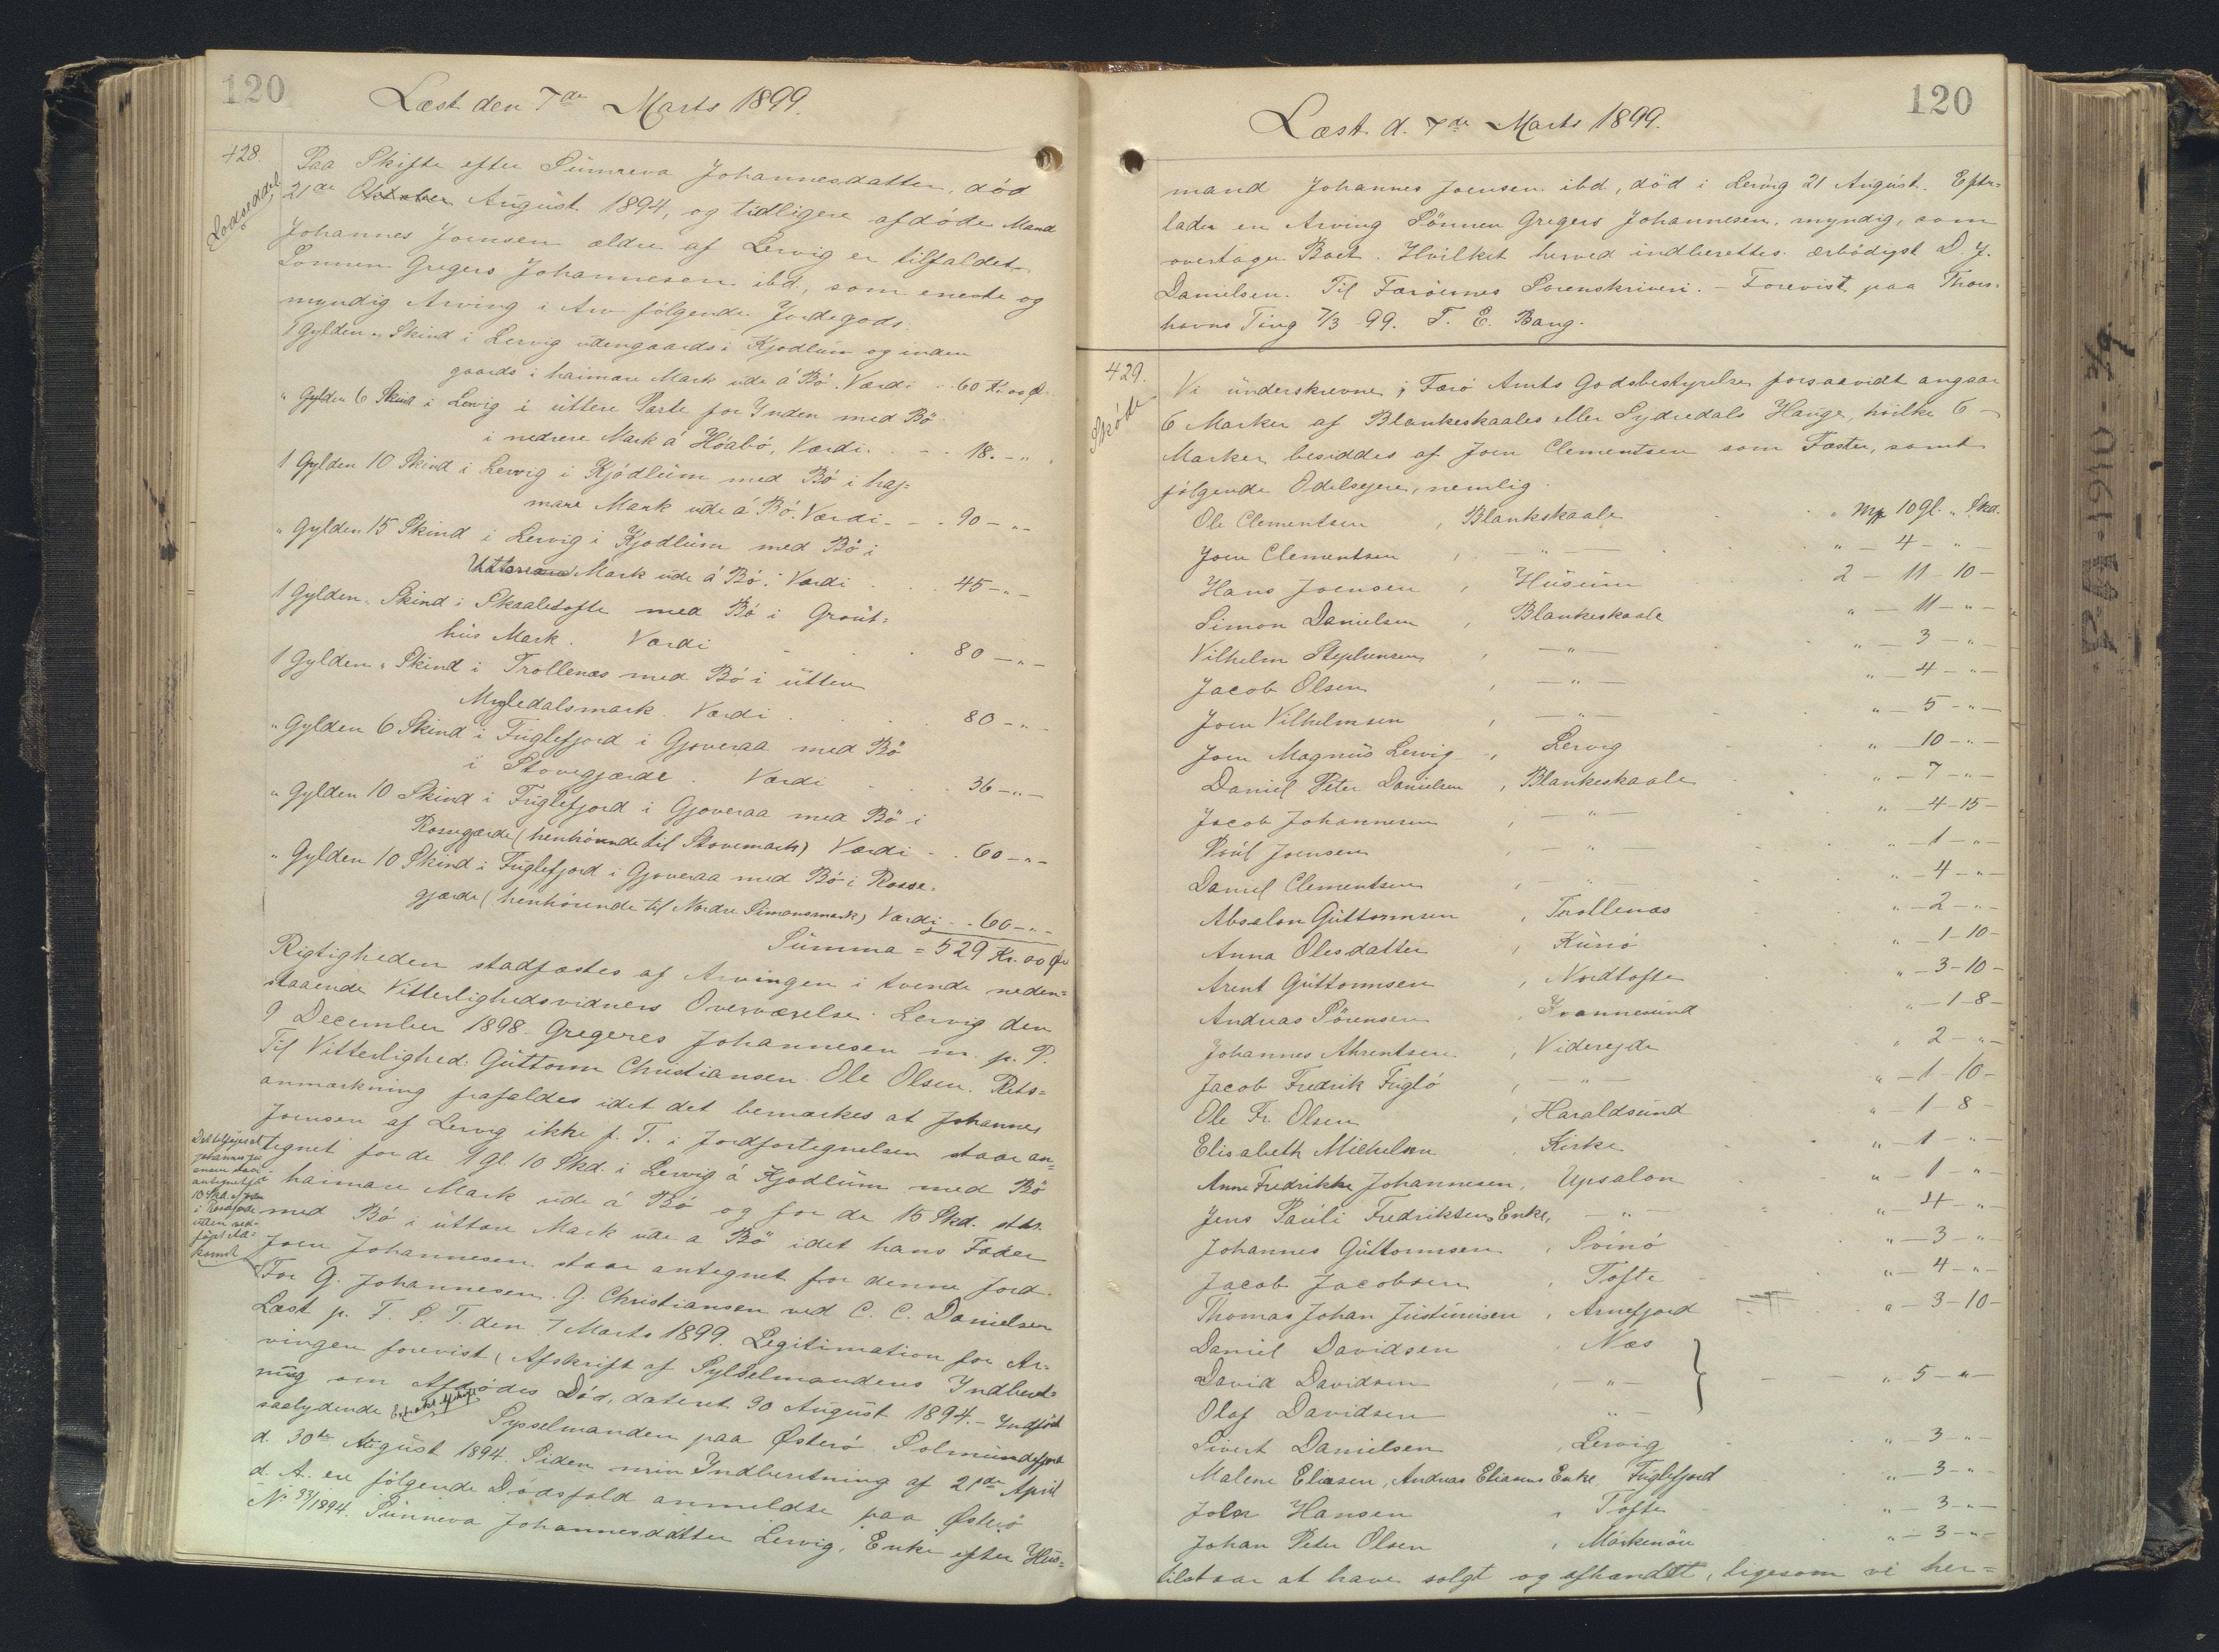 120
Læst den 7de Marts 1899.
428.
Lodseddel
Paa Skifte efter Sünneva Johannesdatter, död
21de Oktober August 1894, og tidligere afdøde Mand
Johannes Joensen ældre af Lervig er tilfaldet
Sønnen Gregers Johannesen ibd, som eneste og
myndig Arving i Arv følgende Jordegods.
1 Gylden " Skind i Lervig udengaards i Kjødlum og inden
gaards i haimare Mark ude á Bø. Værdi - - 60 Kr 00 Ø.
" Gylden 6 Skind i Lervig i üttere Parte for Ynden med Bø
i nedrere Mark á Hóabø, Værdi. - - 18. - "
1 Gylden 10 Skind i Lervig i Kjødlum med Bø i haj=
mare Mark ude á Bø. Værdi - - - 90 - " -
" Gylden 15 Skind i Lervig i Kjødlum med Bø i
Mark ude á Bø. Værdi . . . 45 - " -
1 Gylden " Skind i Skaaletofte med Bø i Groüt=
hüs Mark. Værdi - . . . 80 - " -
1 Gylden " Skind i Trollenæs med Bø i ütten
Mygledalsmark. Værdi . . . . 80 - " -
" Gylden 6 Skind i Fuglefjord i Gjoveraa med Bø
i Stovegjærde. Værdi . . . 36 - " -
" Gylden 10 Skind i Fuglefjord i Gjoveraa med Bø i
Rossegjærde (henhørende til Stovemark) Værdi - . 60 - " -
" Gylden 10 Skind i Fuglefjord i Gjoveraa med Bø i Rosse=
gjærde (henhørende til Nordre Simonsmark) Værdi - . 60 - " -
Summa = 529 Kr. 00 Øre
Rigtigheden stadfæstes af Arvingen i tvende neden=
staaende Vitterlighedsvidners Overværelse. Lervig den
9 December 1898. Gregeres Johannesen m. p. P.
Til Vitterlighed: Güttorm Christiansen. Ole Olsen. Rets=
anmærkning frafaldes idet det bemærkes at Johannes
Joensen af Lervig ikke p. T. i Jordfortegnelsen staar an=
tegnet for de 1 Gl. 10 Skd. i Lervig á Kjødlum med Bø
i haimare Mark ude á Bø og for de 15 Skd. stds.
med Bø i üttare Mark ude a Bø idet hans Fader
Joen Johannesen staar antegnet for denne Jord.
Det tilføjes at
For G. Johannesen. G. Christiansen ved C. C. Danielsen
Læst p. T. S. T. den 7 Marts 1899. Legitimation for Ar=
vingen forevist, (Afskrift af Sysselmandens Yndberet=
ning om Afdødes Död, dateret 30 August 1894. - Yndført
saalydende Sysselmanden paa Østerø. Solmundefjord
d. 30te August 1894. Siden min Yndberetning af 21de April
d. A. ere følgende Dödsfald anmeldte paa Østerø
No 33/1894. Sünneva Johannesdatter Lervig, Enke efter Hus=
120
Læst d. 7de Marts 1899.
mand Johannes Joensen ibd, död i Lervig 21 August. Efter=
lader en Arving Sönnen Gregers Johannesen, myndig, som
overtager Boet. Hvilket herved indberettes ærbödigst D. J.
Danielsen. Til Færöernes Sorenskriveri. - Forevist paa Thors=
havns Ting 7/3 - 99. T. E. Bang.
429.
Skøde
Vi ünderskrevne, Færö Amts Godsbestyrelse forsaavidt angaar
6 Marker af Blankeskaales eller Sydredals Hauge, hvilke 6
Marker besiddes af Joen Clementsen som Fæster, samt
følgende Odelsejere, nemlig.
Ole Clementsen , Blankskaale . " Mk 10 Gl. " Skd.
Joen Clementsen , - " - . " - 4 - " -
Hans Joensen , Hüsum . 2 - 11 - 10 -
Simon Danielsen , Blankeskaale " - 11 - " -
Vilhelm Stephensen , - " - " - 3 - " -
Jacob Olsen , - " - " - 4 - " -
Joen Vilhelmsen , - " - " - 5 - " -
Joen Magnus Lervig , Lervig " - 10 - " -
Daniel Peter Danielsen , Blankeskaale " - 7 - " -
Jacob Johannesen , - " - " - 4 - 15 -
Poül Joensen , - " - " - 1 - " -
Daniel Clementsen , - " - " - 4 - " -
Absalon Güttormsen , Trollenæs " - 2 - " -
Anna Olesdatter , Künö " - 1 - 10 -
Arent Güttormsen , Nordtofte " - 3 - 10 -
Andreas Sörensen , Kvannesünd " - 1 - 8 -
Johannes Ahrentsen , Viderejde " - 2 - " -
Jacob Fredrik Fuglö , - " - " - 1 - 10 -
Ole Fr. Olsen , Haraldsund " - 1 - 8 -
Elisabeth Mikkelsen , Kirke " - 1 - " -
Anne Fredrikke Johannesen , Upsalon " - 1 - " -
Jens Pauli Fredriksens Enke, - " - " - 4 - " -
Johannes Güttormsen , Svinö " - 3 - " -
Jacob Jacobsen , Tofte " - 4 - " -
Thomas Johan Justinusen , Arnefjord " - 3 - 10 -
Daniel Davidsen , Næs
David Davidsen , - " - } - - " 5 - " -
Olaf Davidsen " -
Sivert Danielsen , Lervig " - 3 - " -
Malene Eliasen, Andreas Eliasens Enke, Fuglefjord " - 3 - " -
John Hansen , Tofte " - 3 - " -
Johan Peter Olsen , Mörkenöre " - 3 - " -
tilstaar at have solgt og afhændet, ligesom vi her=